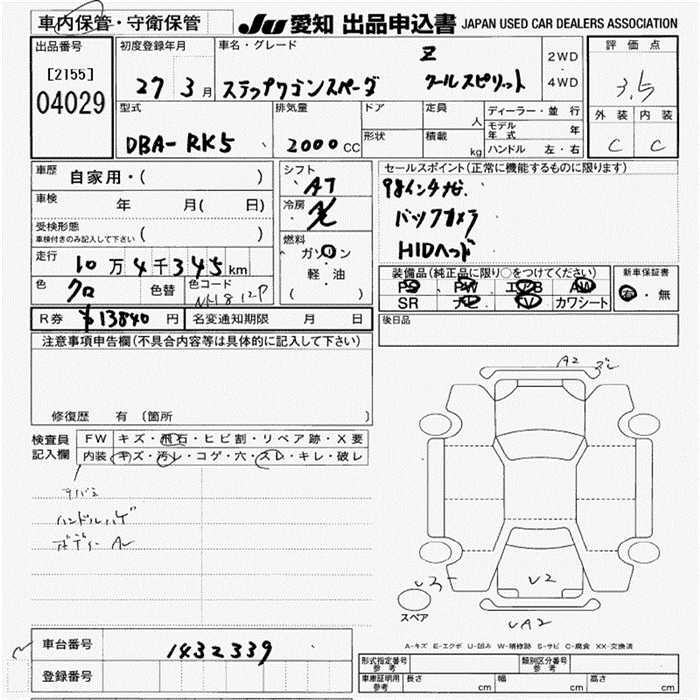 車内保管・守衛保管
JU 愛知 出品申込書 JAPAN USED CAR DEALERS ASSOCIATION
出品番号
[2155]
04029
初度登録年月
27 3月
車名・グレード
Z
ステップワゴンスパーダ クールスピリット
2WD
4WD
評価点
3.5
外装 内装
C C
型式
DBA-RK5
排気量
2000 CC
ドア
形状
定員
人
積載
kg
ディーラー・並行
モデル年式 年
ハンドル 左・右
車歴
自家用・( )
車検
年 月( 日)
受検形態
車検付きのみ記入して下さい ( )
走行
10万4千345km
色
クロ
色替
色コード
NH812P
シフト
AT
冷房
燃料
ガソリン
軽・油
( )
セールスポイント(正常に機能するものに限ります)
バックカメラ
HIDヘッド
装備品(純正品に限り○をつけてください)
PS PW エアB AW
SR ナビ TV カワシート
新車保証書
有・無
後日品
R券 ¥13840 円 名変通知期限 月 日
注意事項申告欄(不具合内容等は具体的に記入して下さい)
修復歴 有 (箇所 )
検査員
記入欄
FW キズ・飛石・ヒビ割・リペア跡・X要
内装 キズ・汚レ・コゲ・穴・スレ・キレ・破レ
ハンドルハゲ
ボディー A
A2
U2
スペア
車台番号
1432339
登録番号
A-キズ E-エクボ U-凹み W-補修跡 S-サビ C-腐食 XX-交換済
形式指定番号
参考
類別区分番号
参考
車庫証明用
参考
長さ cm 幅 cm 高さ cm